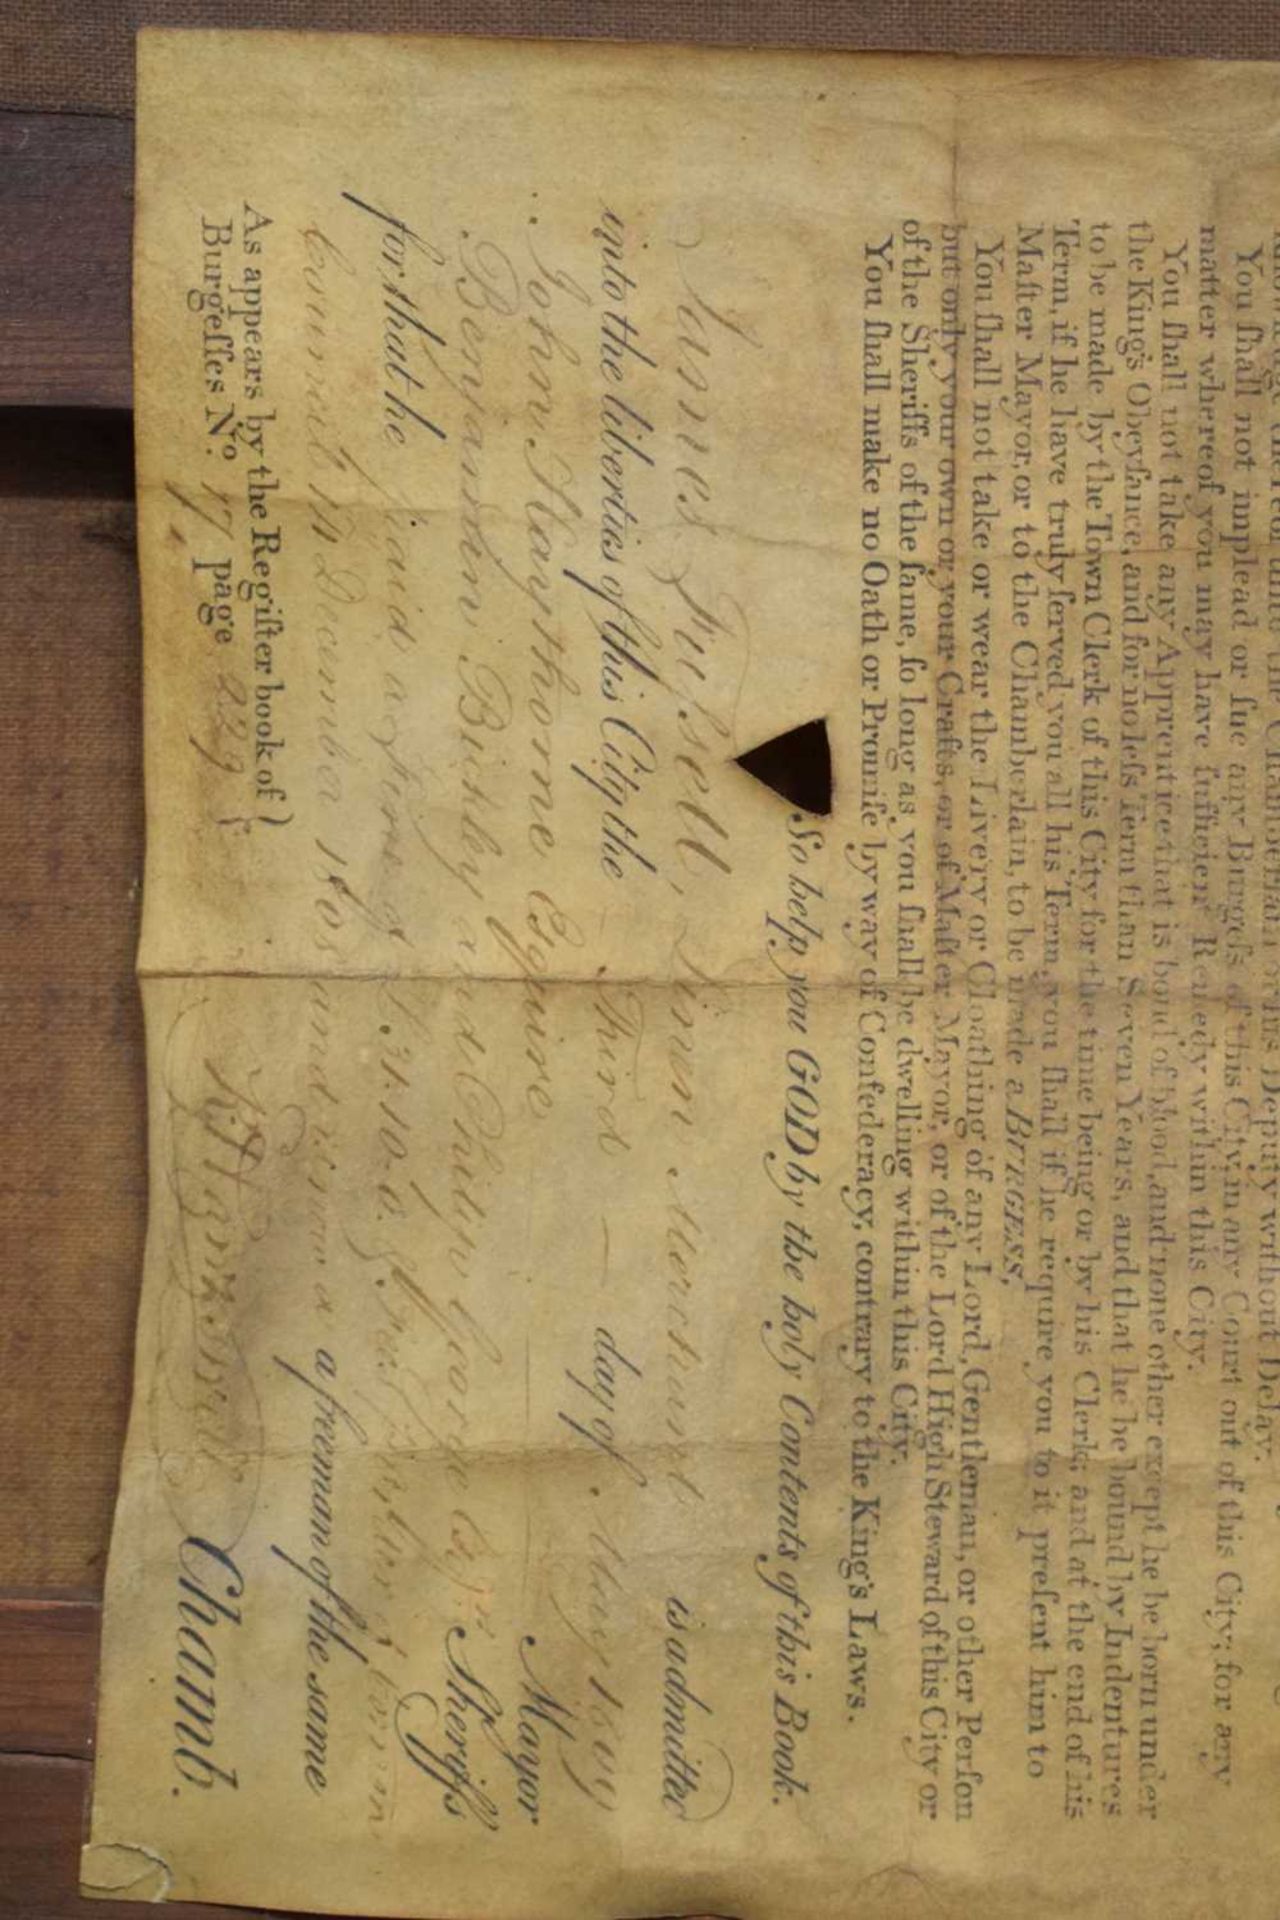 You ſhall not implead or ſue any Burgeſs of this City, in any Court out of this City; for any
matter whereof you may have ſufficient Remedy within this City.
You ſhall not take any Apprentice that is bond of blood, and none other except he be born under
the King's Obeyſance, and for no leſs Term than Seven Years, and that he be bound by Indentures
to be made by the Town Clerk of this City for the time being or by his Clerk; and at the end of his
Term, if he have truly ſerved you all his Term, you ſhall if he require you to it preſent him to
Maſter Mayor, or to the Chamberlain, to be made a BURGESS,
You ſhall not take or wear the Livery or Cloathing of any Lord, Gentleman, or other Perſon
but only your own or your Crafts, or of Maſter Mayor, or of the Lord High Steward of this City or
of the Sheriffs of the ſame, ſo long as you ſhall be dwelling within this City.
You ſhall make no Oath or Promiſe by way of Confederacy, contrary to the King's Laws.
So help you GOD by the holy Contents of this Book.
James Fuſsell, Linen Merchant is admitted
into the liberties of this City the Third — day of May 1809
John Haythorne Esquire Mayor
Benjamin Bickley and Philip George Esqrs Sheriffs
for that he paid a fine of
Council in December 1808 and is now a a freeman of the same
As appears by the Regiſter book of
Burgeſses No. 17 page 229 Chamb.